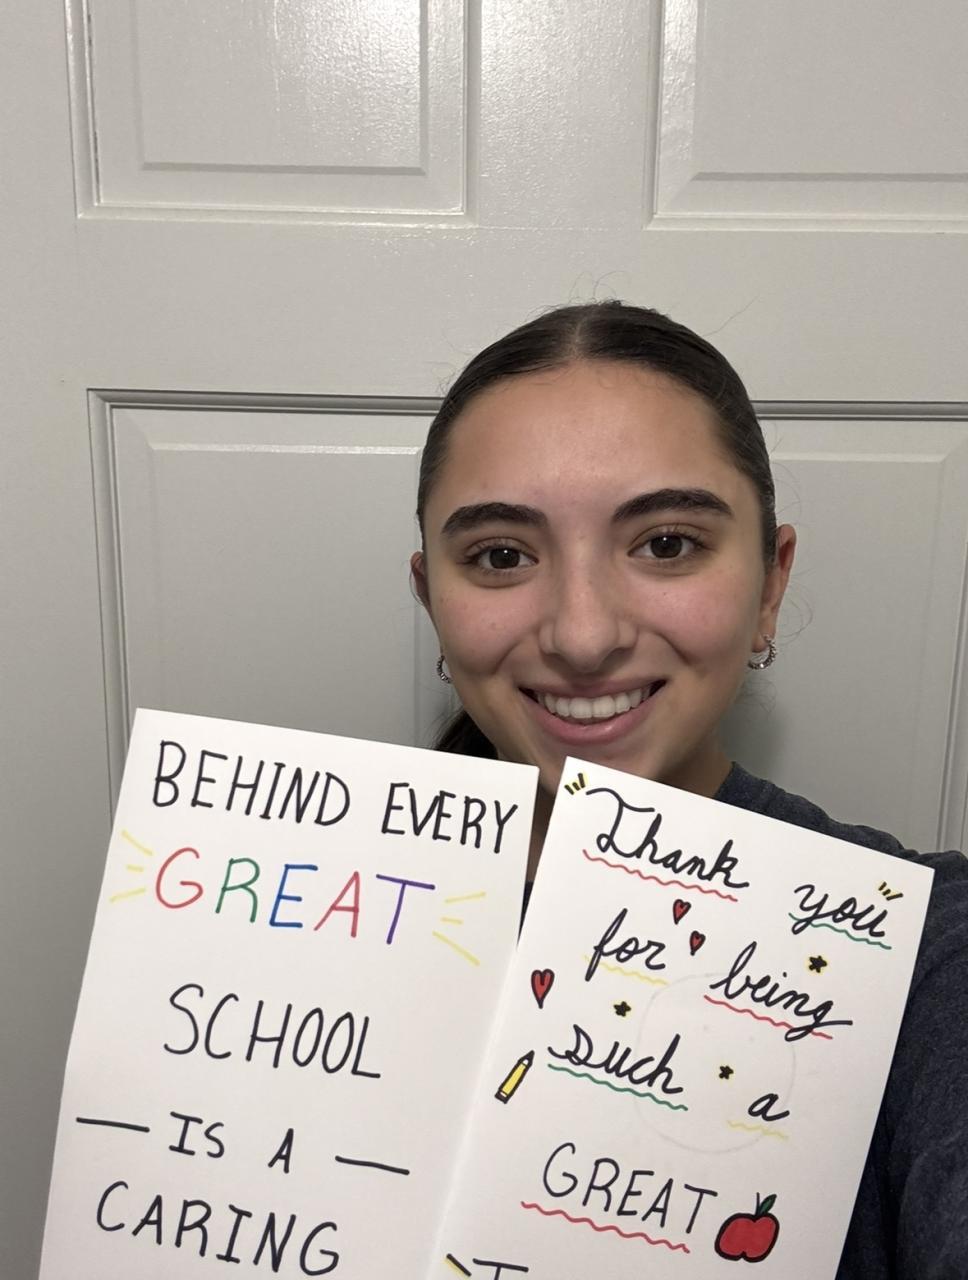 BEHIND EVERY
GREAT
SCHOOL
— IS A —
CARING
Thank you
for being
such a
GREAT